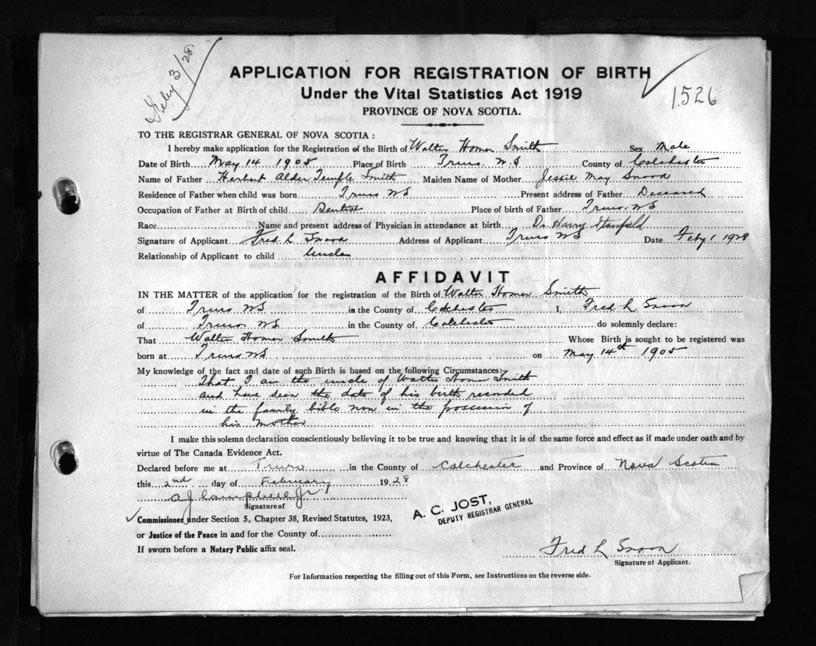 Feby 3/28
APPLICATION FOR REGISTRATION OF BIRTH
1526
Under the Vital Statistics Act 1919
PROVINCE OF NOVA SCOTIA.
TO THE REGISTRAR GENERAL OF NOVA SCOTIA :
I hereby make application for the Registration of the Birth of Walter Homer Smith Sex Male
Date of Birth May 14 1905 Place of Birth Truro N.S County of Colchester
Name of Father Herbert Alder Temple Smith Maiden Name of Mother Jessie May Snook
Residence of Father when child was born Truro NS Present address of Father Deceased
Occupation of Father at Birth of child Dentist Place of birth of Father Truro, NS
Race Name and present address of Physician in attendance at birth Dr Harry Stanfield
Signature of Applicant Fred L Snook Address of Applicant Truro NS Date Feby 1 1928
Relationship of Applicant to child Uncle
AFFIDAVIT
IN THE MATTER of the application for the registration of the Birth of Walter Homer Smith
of Truro NS in the County of Colchester I, Fred L Snook
of Truro NS in the County of Colchester do solemnly declare:
That Walter Homer Smith Whose Birth is sought to be registered was
born at Truro NS on May 14th 1905
My knowledge of the fact and date of such Birth is based on the following Circumstances:
That I am the uncle of Walter Homer Smith
and have seen the date of his birth recorded
in the family bible now in the possession of
his mother
I make this solemn declaration conscientiously believing it to be true and knowing that it is of the same force and effect as if made under oath and by
virtue of The Canada Evidence Act.
Declared before me at Truro in the County of Colchester and Province of Nova Scotia
this 2nd day of February 1928
A J Campbell Jr
Signature of
Commissioner under Section 5, Chapter 38, Revised Statutes, 1923,
or Justice of the Peace in and for the County of
If sworn before a Notary Public affix seal.
A. C. JOST,
DEPUTY REGISTRAR GENERAL
Fred L Snook
Signature of Applicant.
For Information respecting the filling out of this Form, see Instructions on the reverse side.